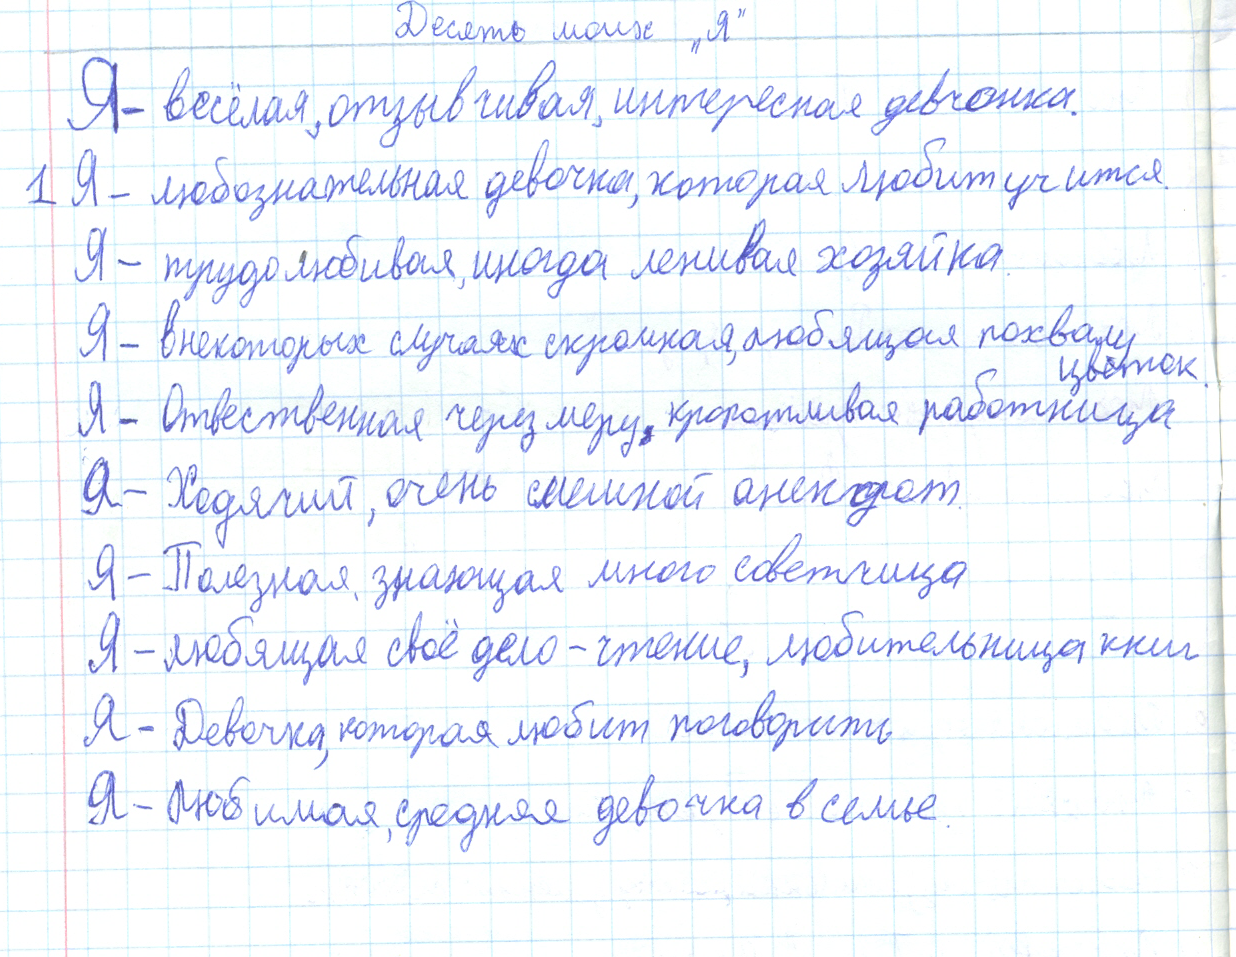 Десять моих „Я"
Я - весёлая, отзывчивая, интересная девчонка.
1 Я - любознательная девочка, которая любит учится.
Я - трудолюбивая, иногда ленивая хозяйка.
Я - внекоторых случаях скромная, любящая похвалу
цветок.
Я - Отвественная через меру, кропотливая работница
Я - Ходячий, очень смешной анекдот.
Я - Полезная, знающая много советчица
Я - любящая своё дело - чтение, любительница книг
Я - Девочка, которая любит поговорить
Я - Любимая, средняя девочка в семье.